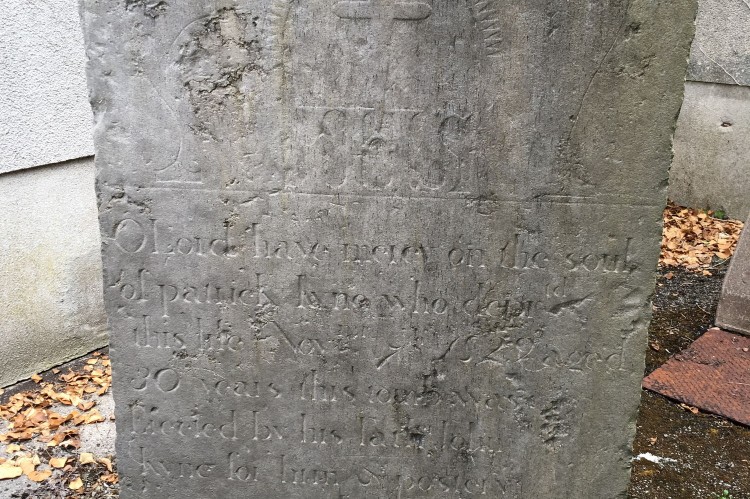 IHS
O Lord have mercy on the soul
of patrick kyne who dep,rd
this life Novr aged
30 years this tomb was
Ercted by his fathr John
kyne for him & postery